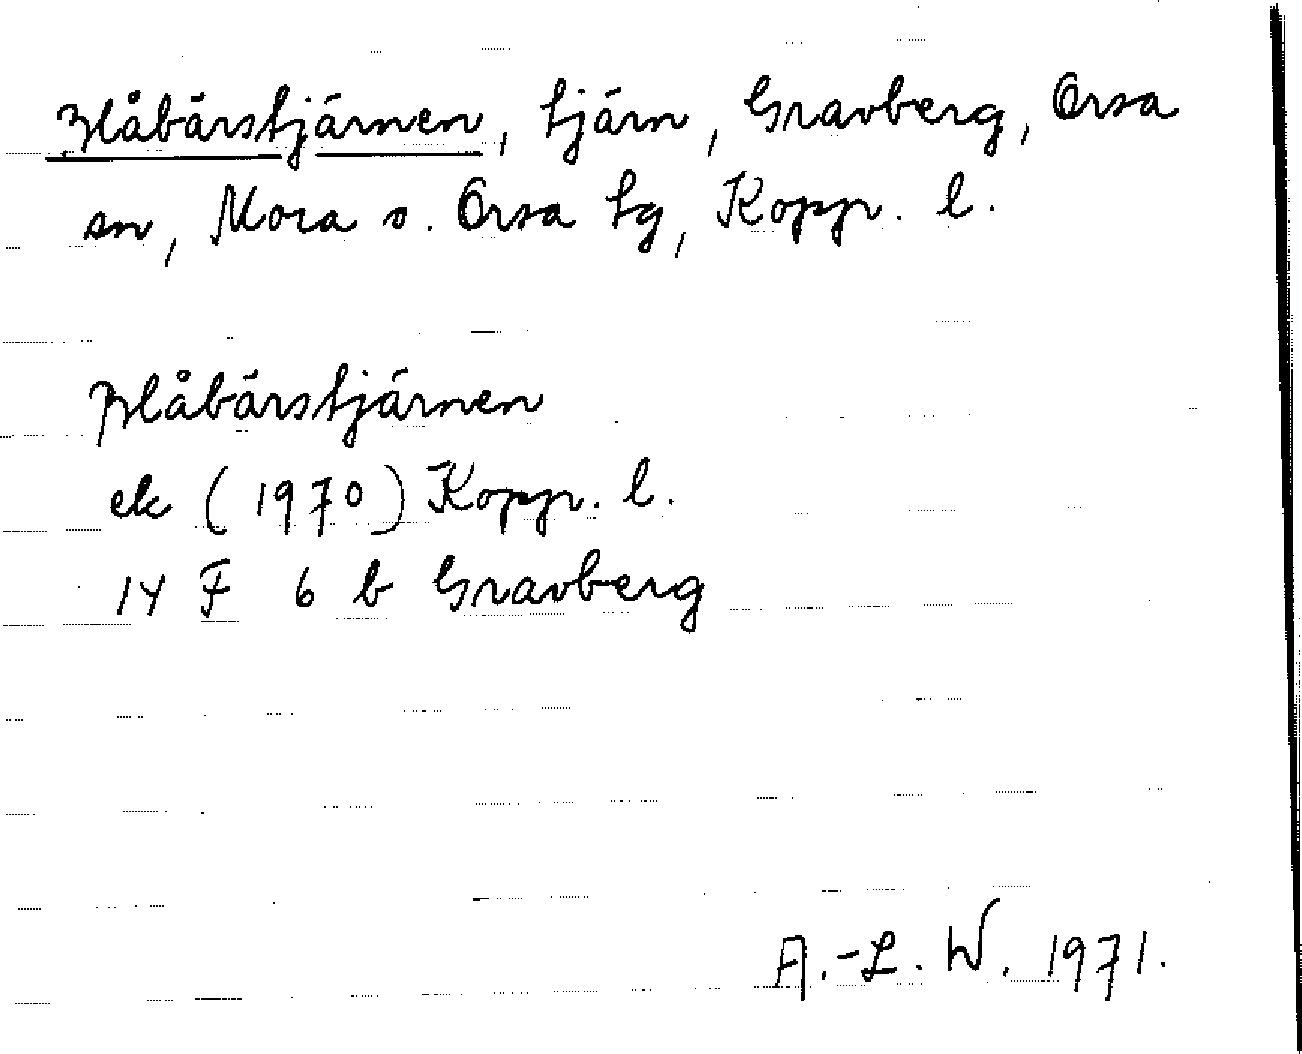 Blåbärstjärnen, tjärn, Gravberg, Orsa
sn, Mora o. Orsa tg, Kopp. l.
Blåbärstjärnen
ek (1970) Kopp. l.
14 F 6 b Gravberg
A.-L. W. 1971.